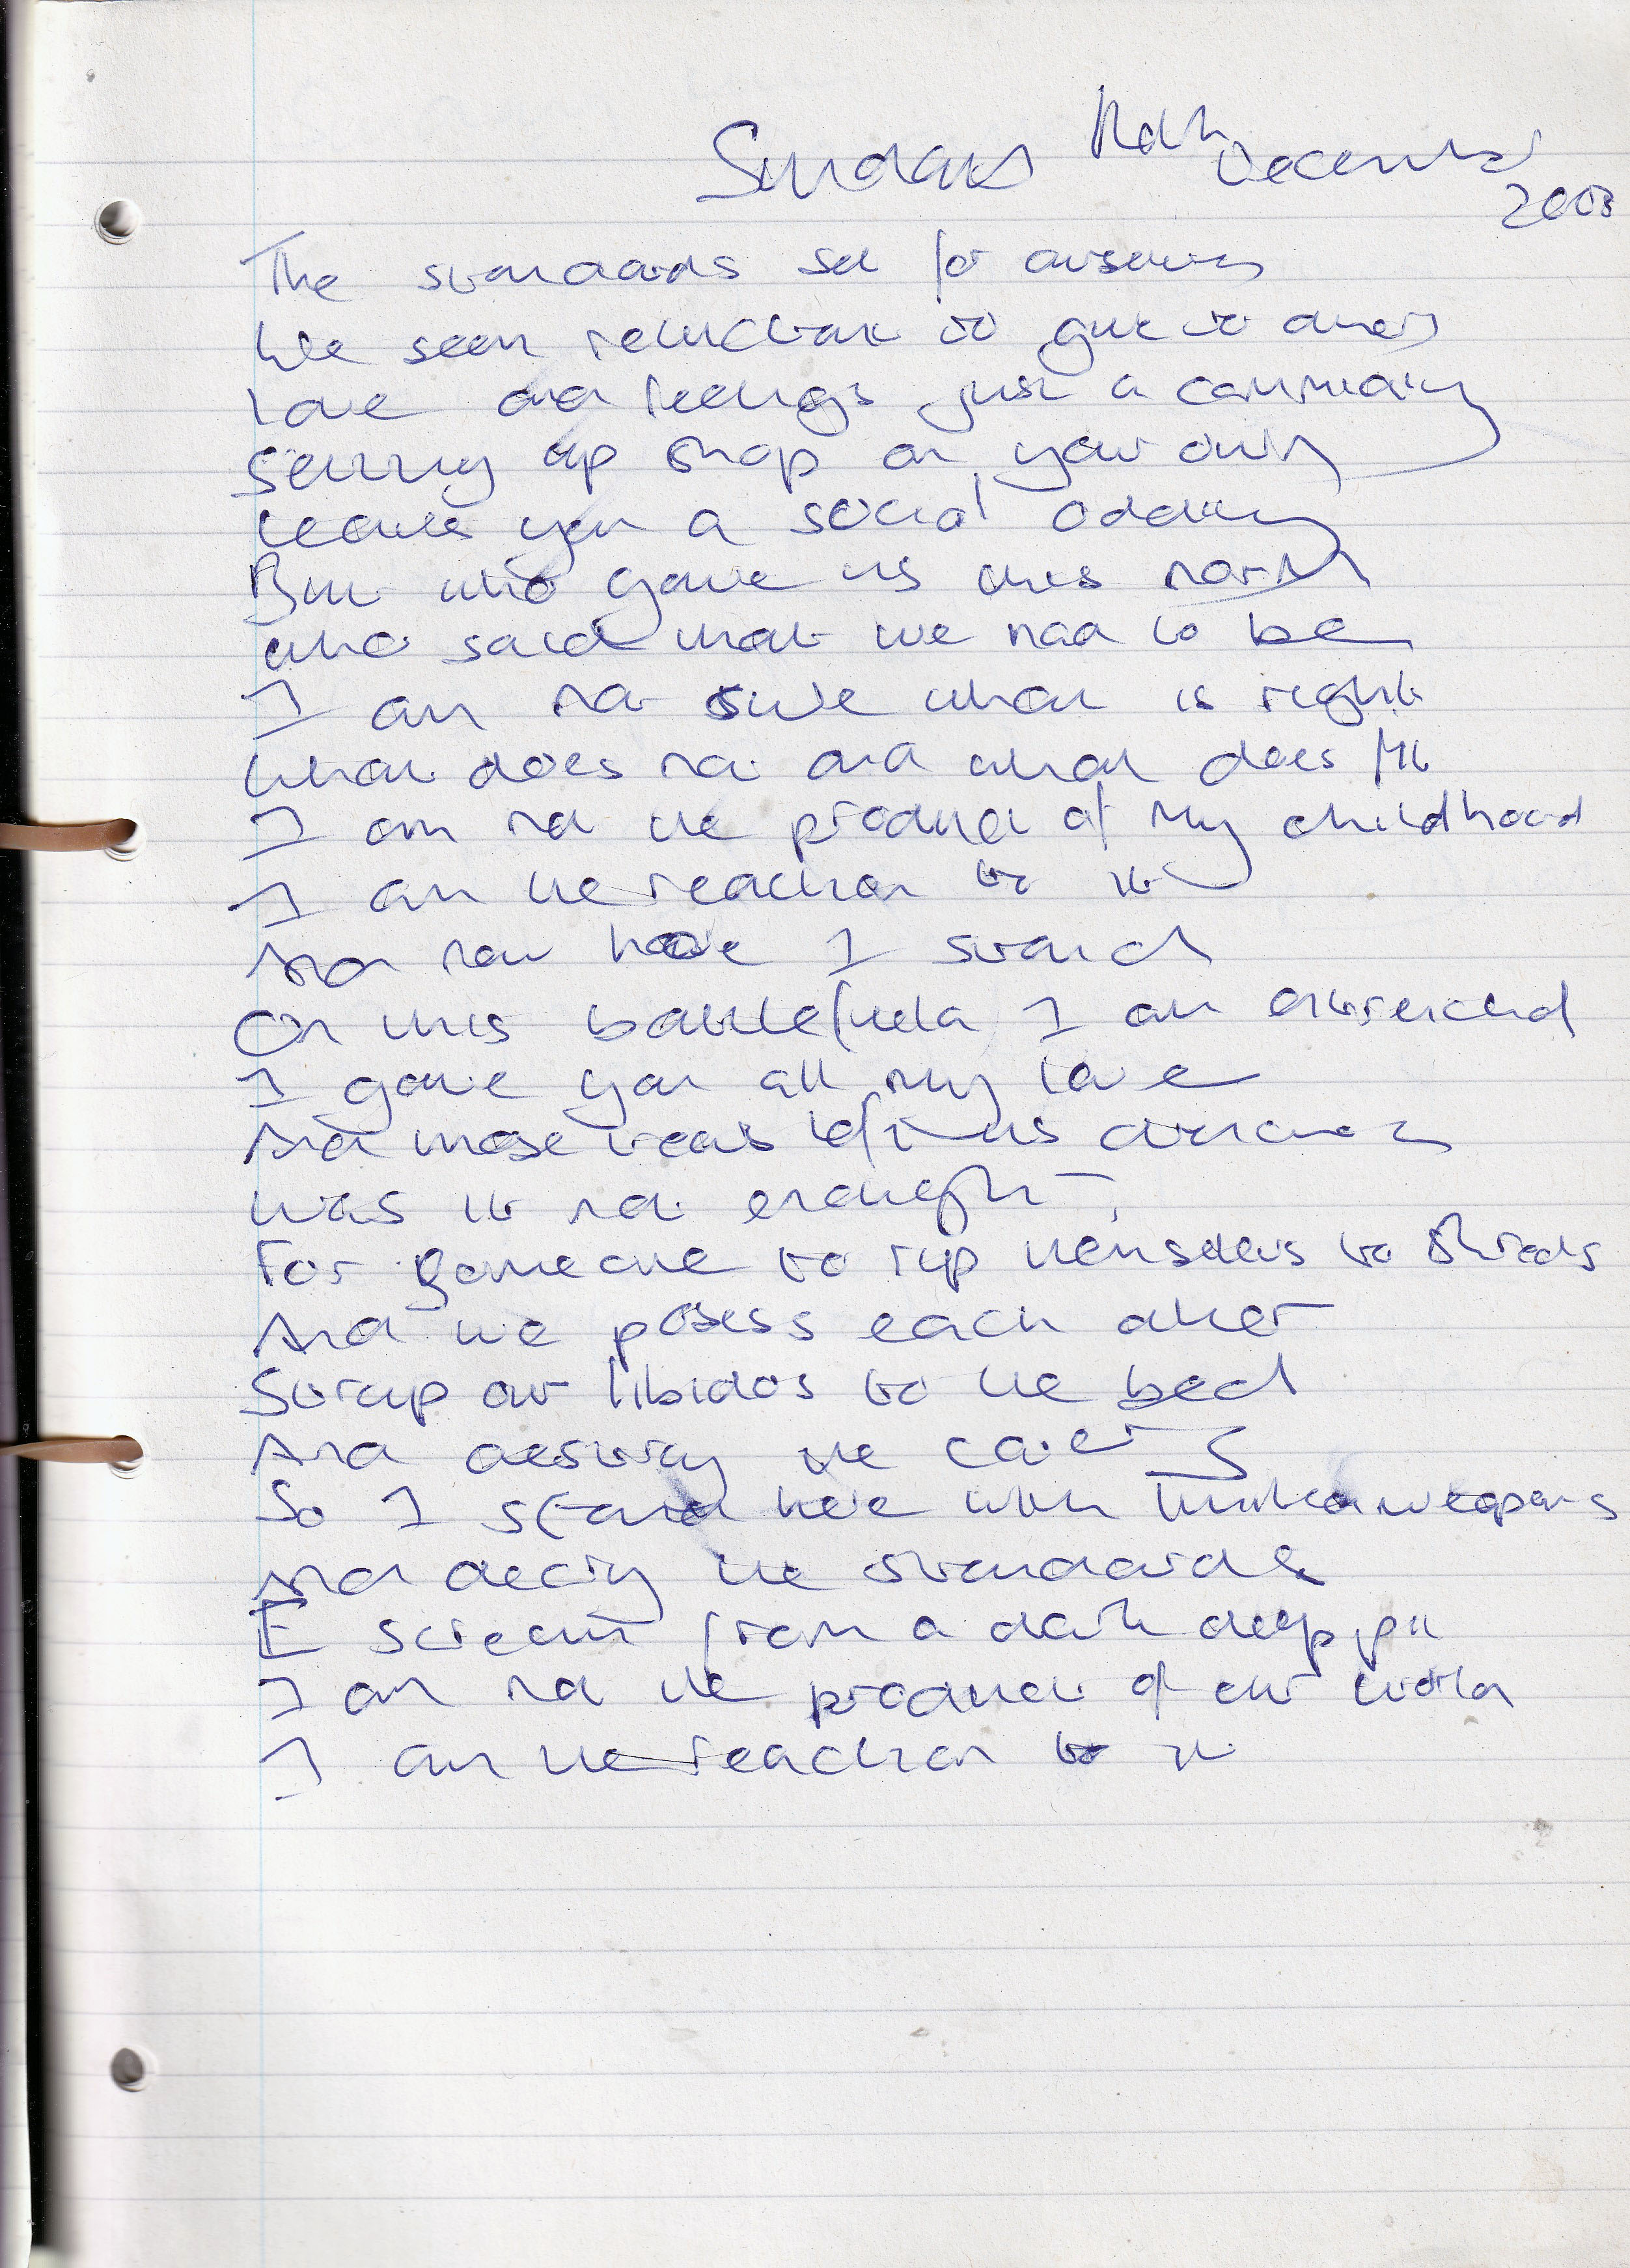 Sunday December
2003
The standards set for ourselves
We seem reluctant to give to others
Love and feelings just a commodity
Setting up shop on your own
Leaves you a social oddity
But who gave us this norm
Who said what we had to be
I am not sure what is right
What does not and what does fit
I am not the product of my childhood
I am the reaction to it
And now here I stand
On this battlefield I am outreached
I gave you all my love
And those years left us
Was it not enough
For someone to rip themselves to shreds
And we posess each other
Strap our libidos to the bed
And destroy the covers
So I stand here with weapons
And decry the standards
I scream from a dark deep pit
I am not the product of our world
I am the reaction to it